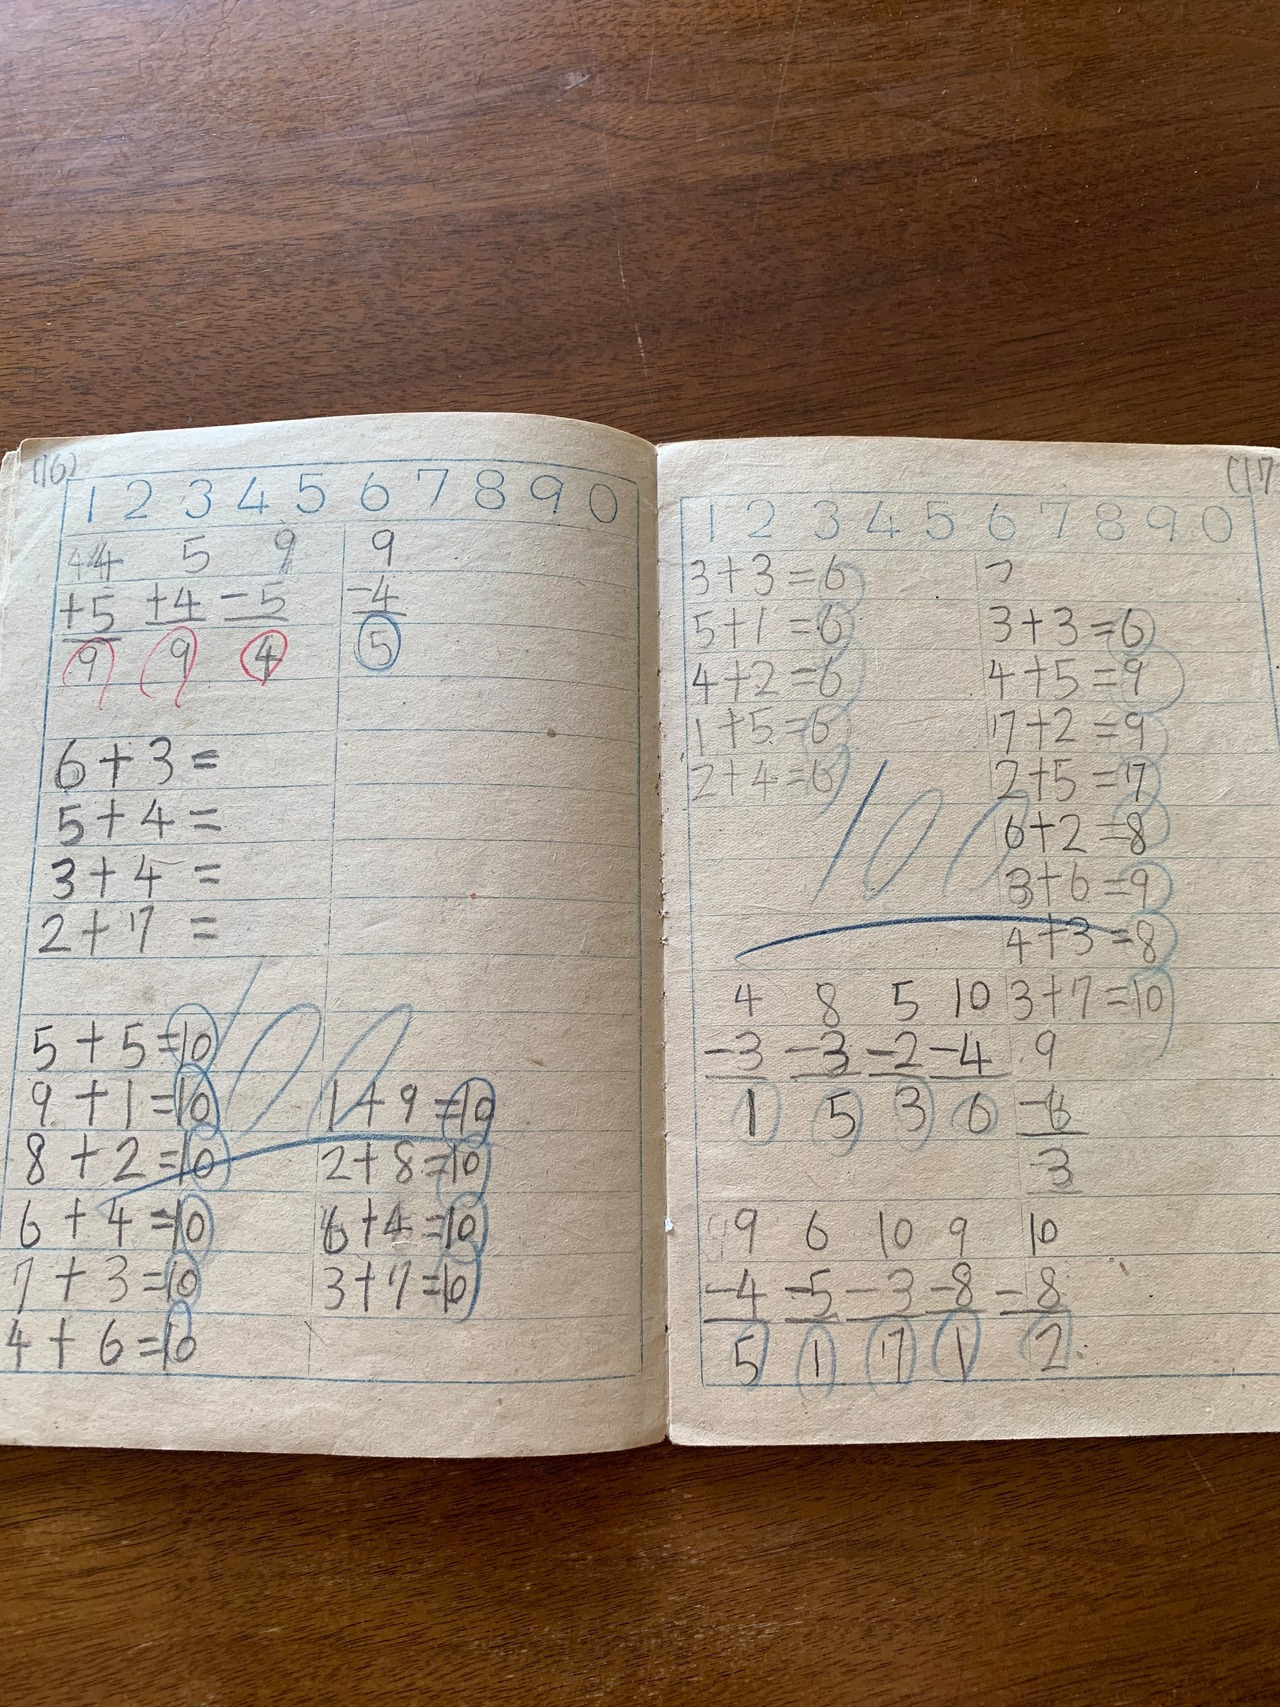 (16)
1 2 3 4 5 6 7 8 9 0
4 5 9 9
+5 +4 -5 -4
9 9 4 5
6+3=
5+4=
3+4=
2+7=
100
5+5=10
9+1=10
8+2=10
6+4=10
7+3=10
4+6=10
1+9=10
2+8=10
6+4=10
3+7=10
(17
1 2 3 4 5 6 7 8 9 0
3+3=6
5+1=6
4+2=6
1+5=6
2+4=6
100
3+3=6
4+5=9
7+2=9
2+5=7
6+2=8
3+6=9
4+3=8
3+7=10
4 8 5 10
-3 -3 -2 -4
1 5 3 6
9
-6
3
9 6 10 9 10
-4 -5 -3 -8 -8
5 1 7 1 2